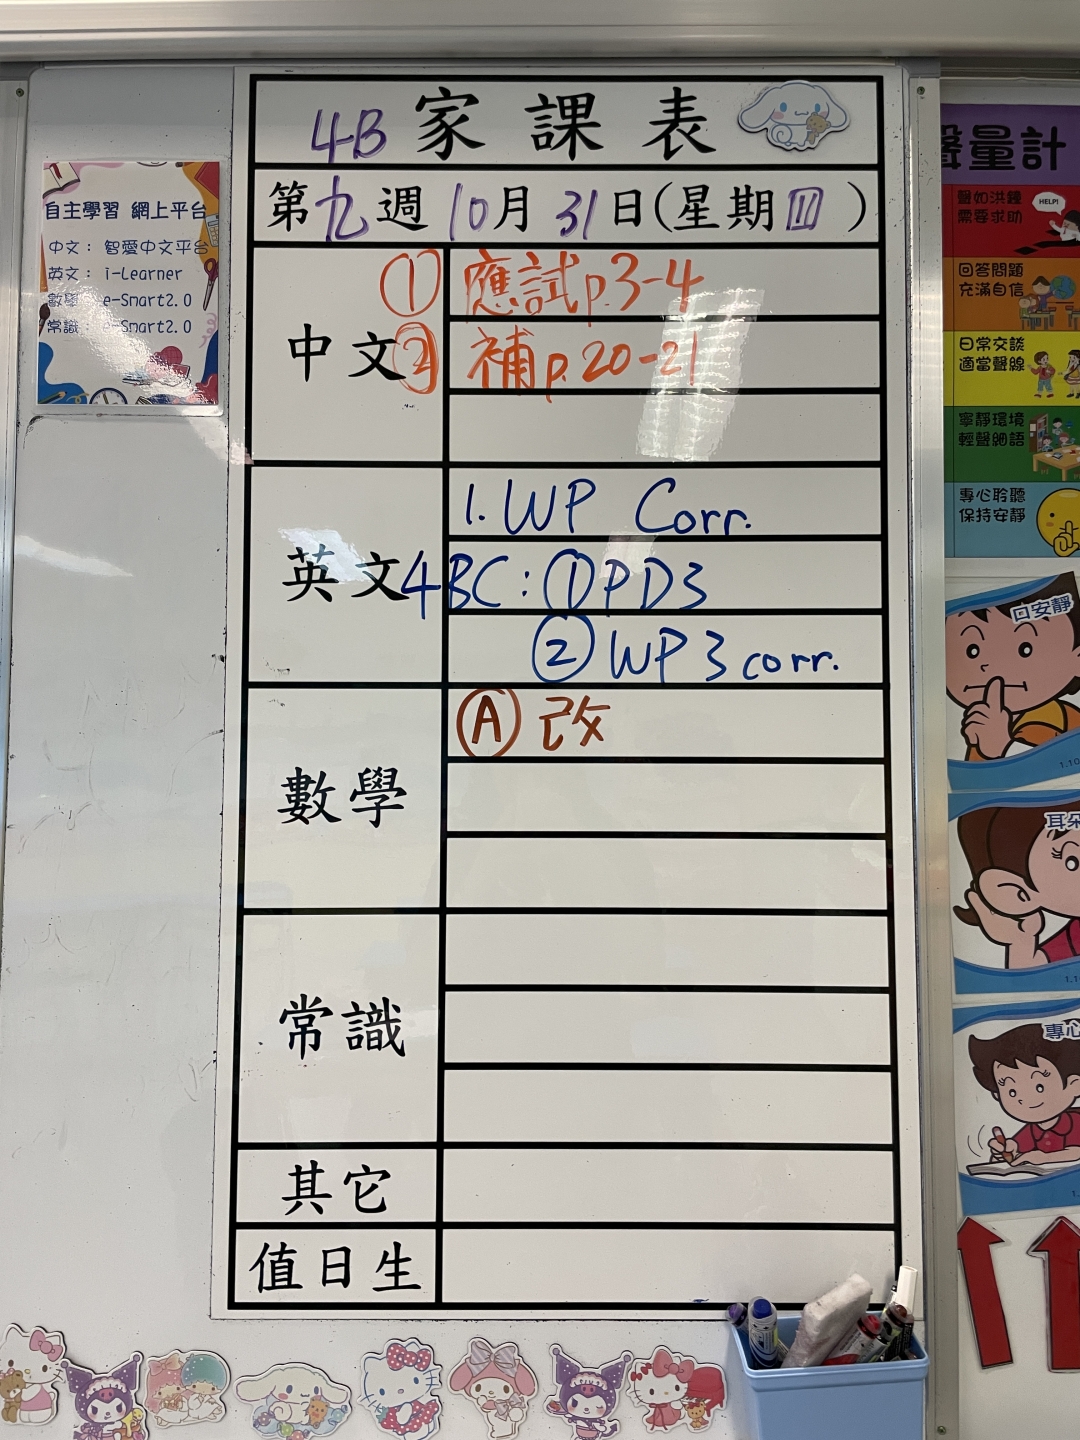 4B 家課表
第九週 10月31日(星期四)
中文
① 應試p.3-4
② 補p.20-21
英文
1. WP Corr.
4BC: ①PD3
② WP 3 corr.
數學
Ⓐ 改
常識
其它
值日生
自主學習 網上平台
中文： 智愛中文平台
英文： i-Learner
數學： e-Smart2.0
常識： e-Smart2.0
聲量計
聲如洪鐘
需要求助
HELP!
回答問題
充滿自信
日常交談
適當聲線
寧靜環境
輕聲細語
專心聆聽
保持安靜
口安靜
1.10
耳朵
1.1
專心
1.